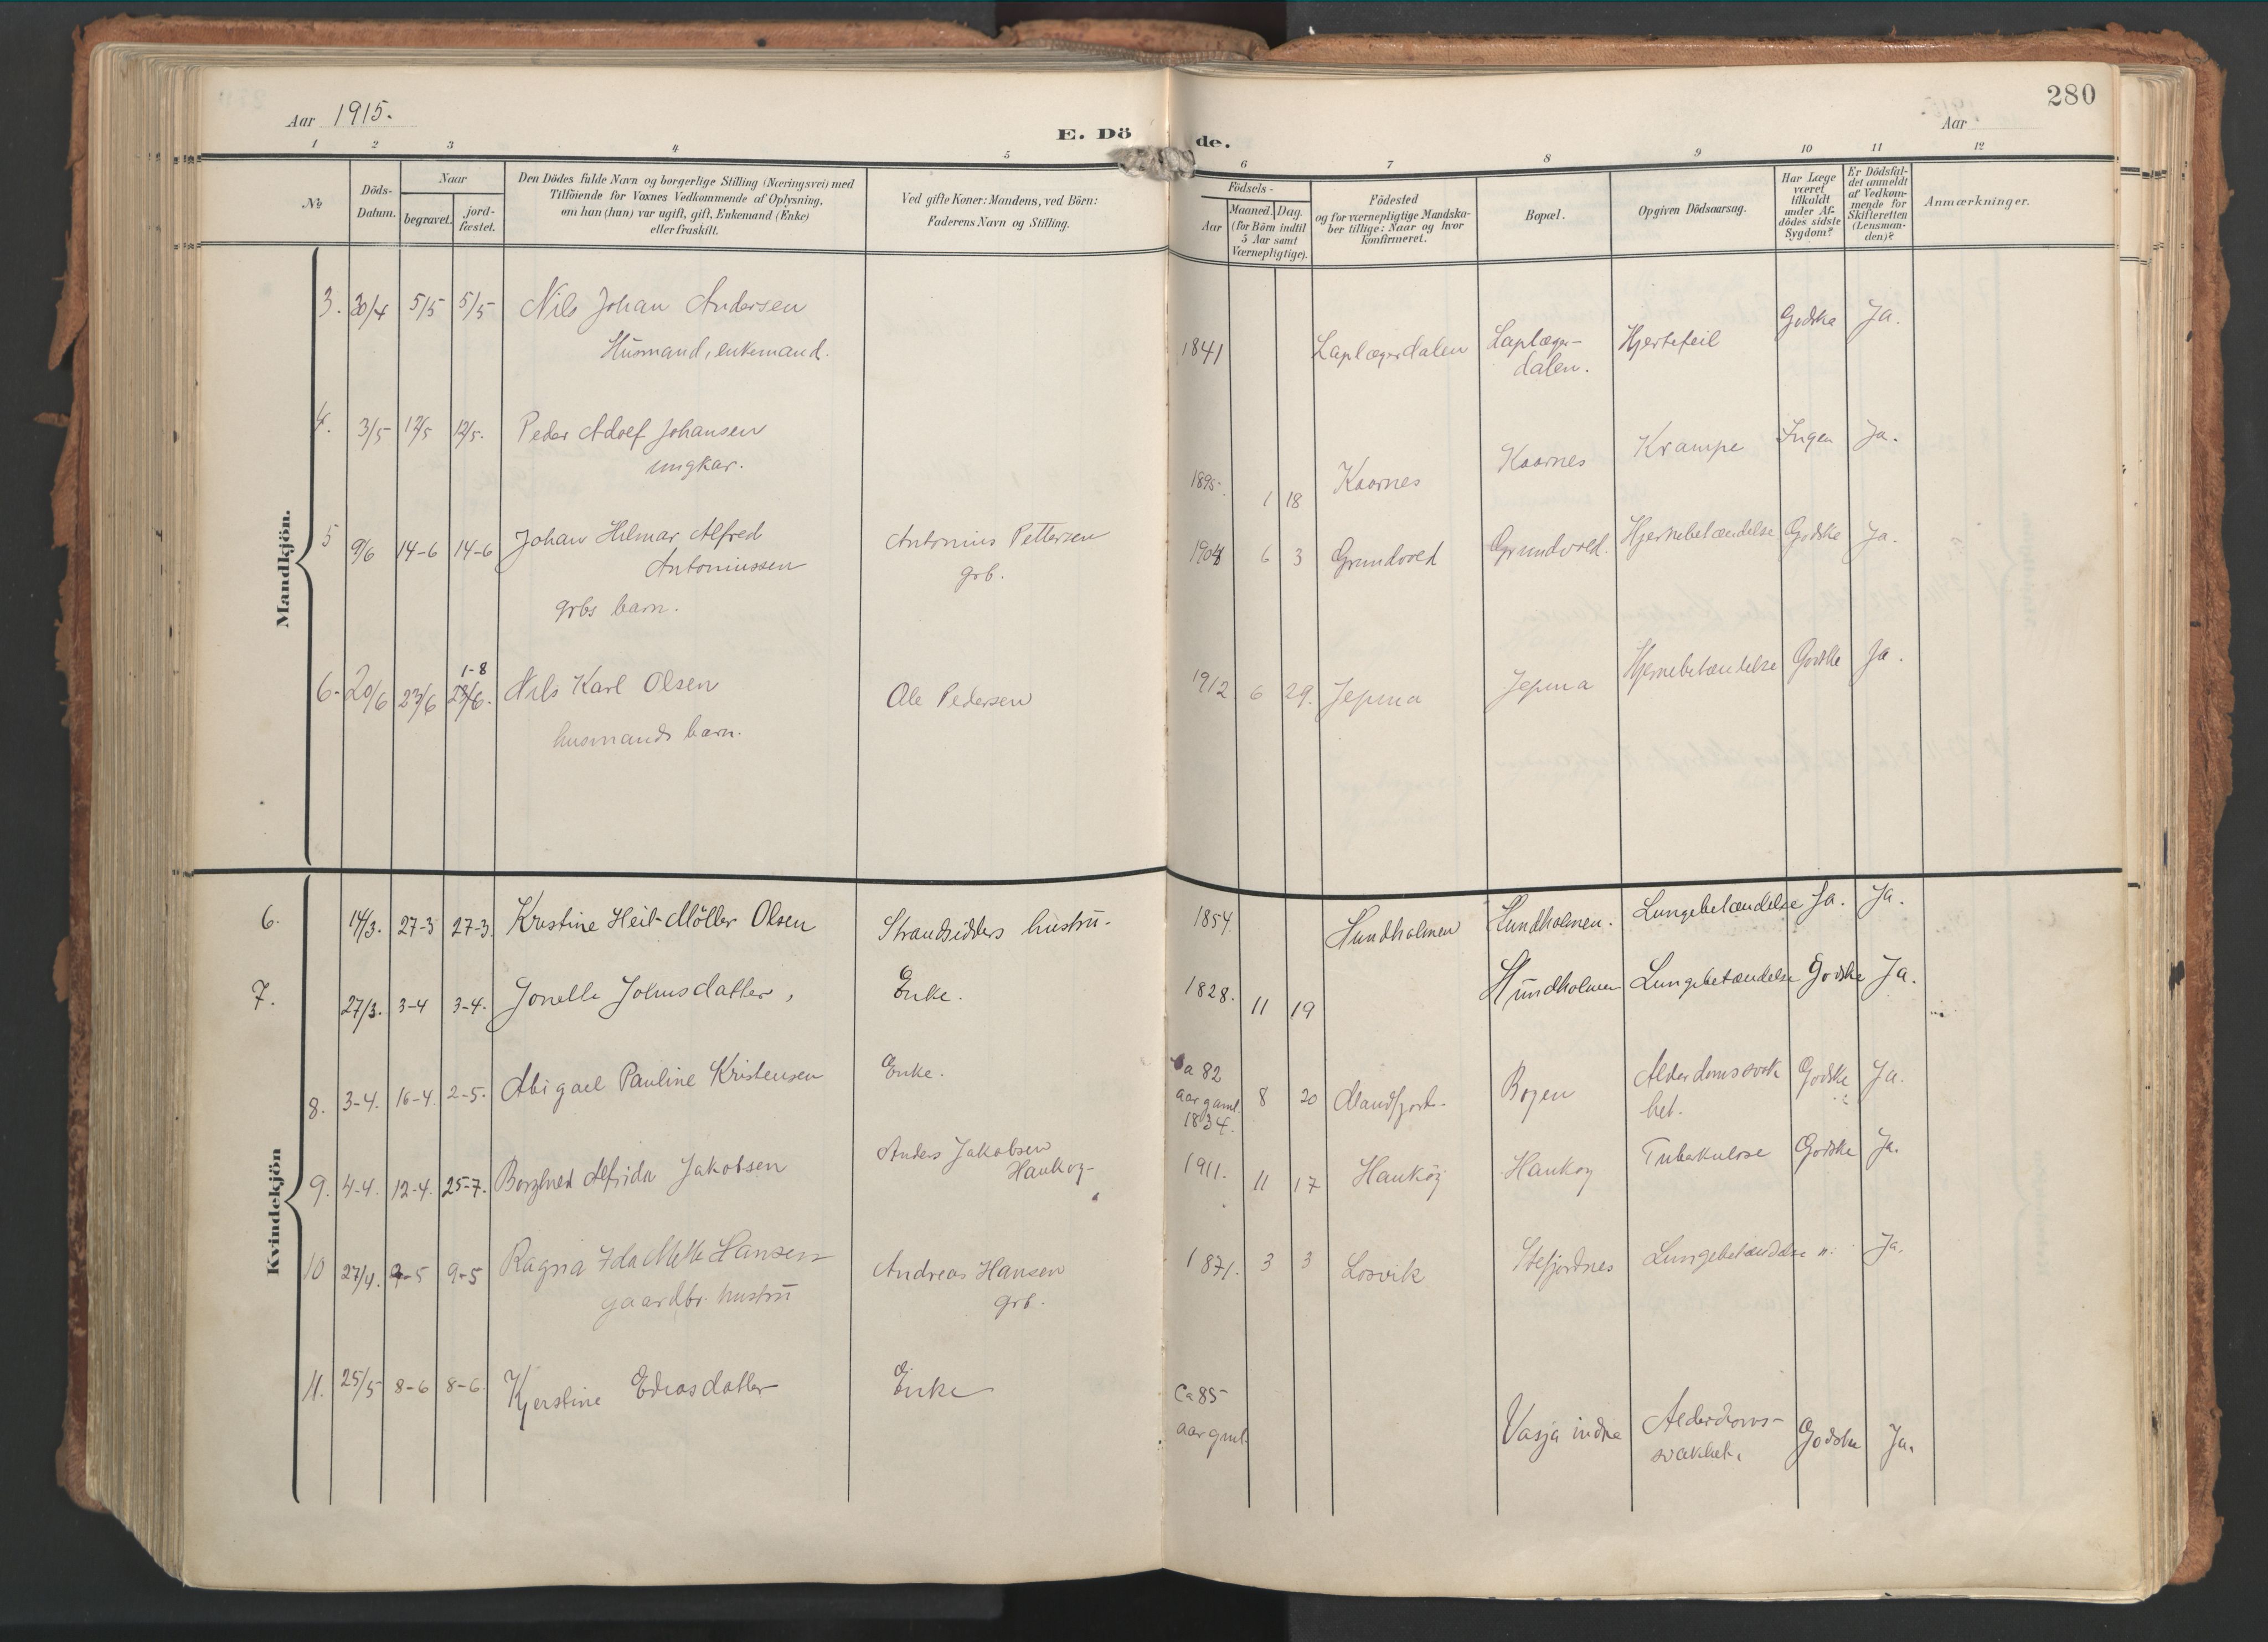 280
Aar 1915.
Aar
E. Dö
de.
1 2 3 4 5 6 7 8 9 10 11 12
№
Döds-
Datum.
Naar
begravet.
jord-
fæstet.
Den Dödes fulde Navn og borgerlige Stilling (Næringsvei) med
Tilföiende for Voxnes Vedkommende af Oplysning,
om han (hun) var ugift, gift, Enkemand (Enke)
eller fraskilt.
Ved gifte Koner: Mandens, ved Börn:
Faderens Navn og Stilling.
Födsels-
Aar
Maaned.
Dag.
(for Börn indtil
5 Aar samt
Værnepligtige).
Födested
og for værnepligtige Mandska-
ber tillige: Naar og hvor
konfirmeret.
Bopæl.
Opgiven Dödsaarsag.
Har Læge
været
tilkaldt
under Af-
dödes sidste
Sygdom?
Er Dödsfal-
det anmeldt
af Vedkom-
mende for
Skifteretten
(Lensman-
den)?
Anmærkninger.
Mandkjön.
3. 30/4 5/5 5/5 Nils Johan Andersen
Husmand, enkemand.
1841 Laplægerdalen Laplæger-
dalen.
Hjertefeil Godske Ja.
4. 3/5 12/5 12/5. Peder Adolf Johansen
ungkar.
1895. 1 18 Kaarnes Kaarnes Krampe Ingen Ja.
5 9/6 14-6 14-6 Johan Hilmar Alfred
Antoniussen
grbs barn.
Antonius Pettersen
grb.
1904 6 3 Grundvold Grundvold. Hjernebetændelse Godske Ja.
6. 20/6 23/6 1-8
23/6. Nils Karl Olsen
husmands barn.
Ole Pedersen
1912 6 29. Jepma Jepma Hjernebetændelse Godske Ja.
Kvindekjön
6. 14/3. 27-3 27-3. Kristine Heit-Möller Olsen Strandsidders hustru. 1854. Hundholmen Hundholmen. Lungebetændelse Ja. Ja.
7. 27/3. 3-4 3-4. Jonelle Johnsdatter, Enke. 1828. 11 19 Hundholmen Lungebetændelse Godske Ja.
8. 3-4. 16-4. 2-5. Abigael Pauline Kristensen Enke. Ca 82
aar gaml.
1834.
8 20 Bogen Alderdomssvak
het.
Godske Ja.
9. 4-4. 12-4. 25-7. Borghild Alfrida Jakobsen Anders Jakobsen
Haukøy
1911. 11 17 Hauköy Haukøy Tuberkulose Godske Ja.
10 27/4. 9-5 9-5 Ragna Ida Mette Hansen
gaardbr. hustru
Andreas Hansen
grb.
1871. 3 3 Losvik Stefjordnes Lungebetændelse n: Ja.
11. 25/5 8-6 8-6. Kjerstine Ediasdatter Enke Ca 85
aar gml.
Vasja indre Alderdoms-
svakhet. Godske Ja.